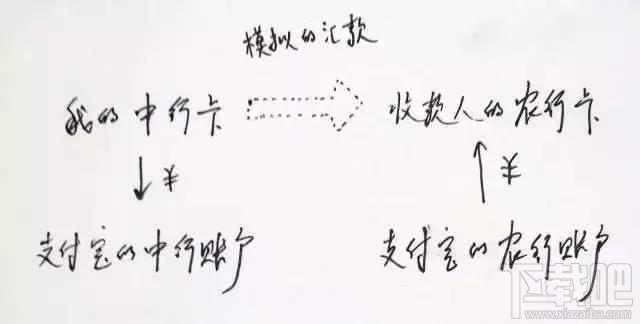 模拟的汇款
我的中行卡 收款人的农行卡
¥ ¥
支付宝的中行账户 支付宝的农行账户
下载吧
www.xiazaiba.com